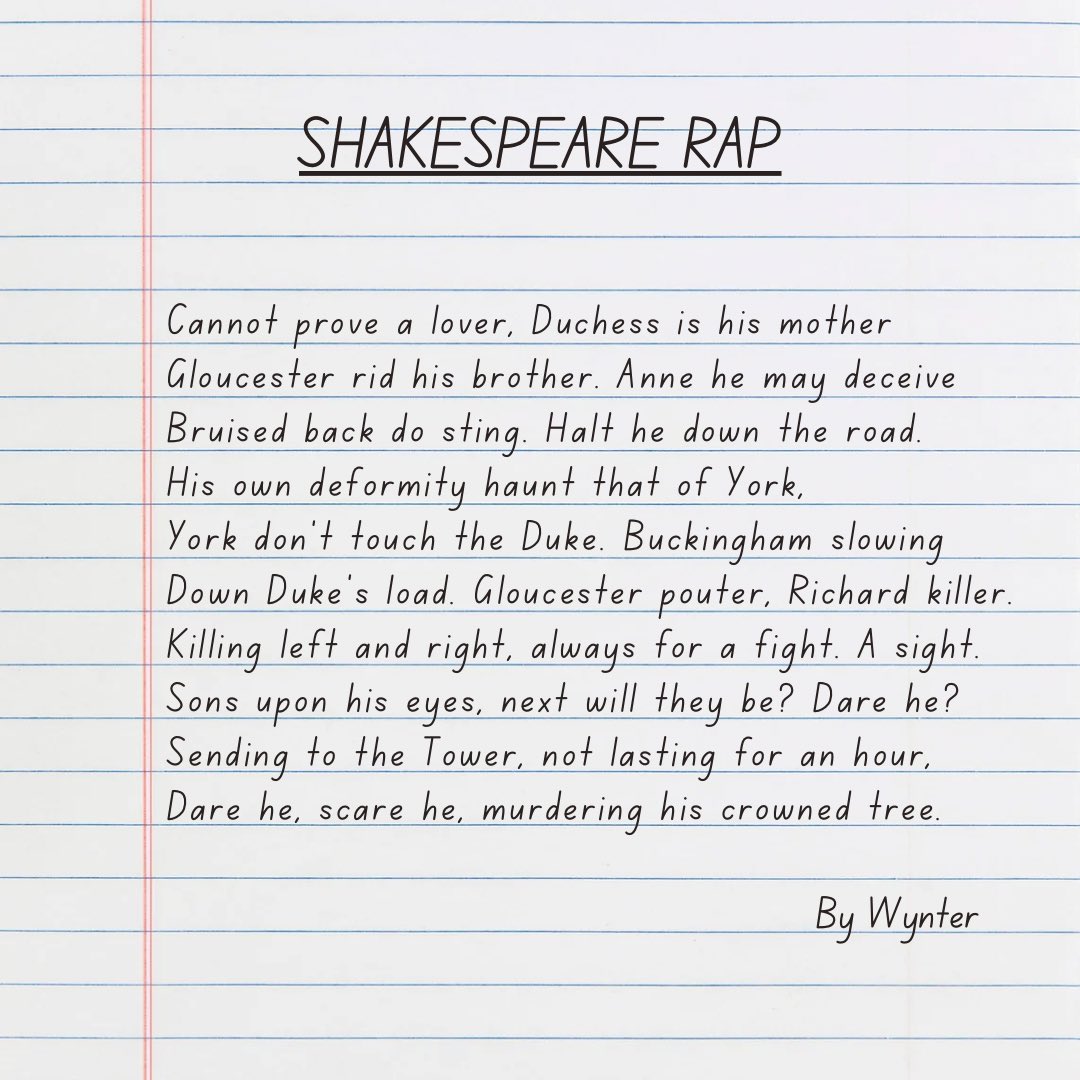 SHAKESPEARE RAP
Cannot prove a lover, Duchess is his mother
Gloucester rid his brother. Anne he may deceive
Bruised back do sting. Halt he down the road.
His own deformity haunt that of York,
York don't touch the Duke. Buckingham slowing
Down Duke's load. Gloucester pouter, Richard killer.
Killing left and right, always for a fight. A sight.
Sons upon his eyes, next will they be? Dare he?
Sending to the Tower, not lasting for an hour,
Dare he, scare he, murdering his crowned tree.
By Wynter